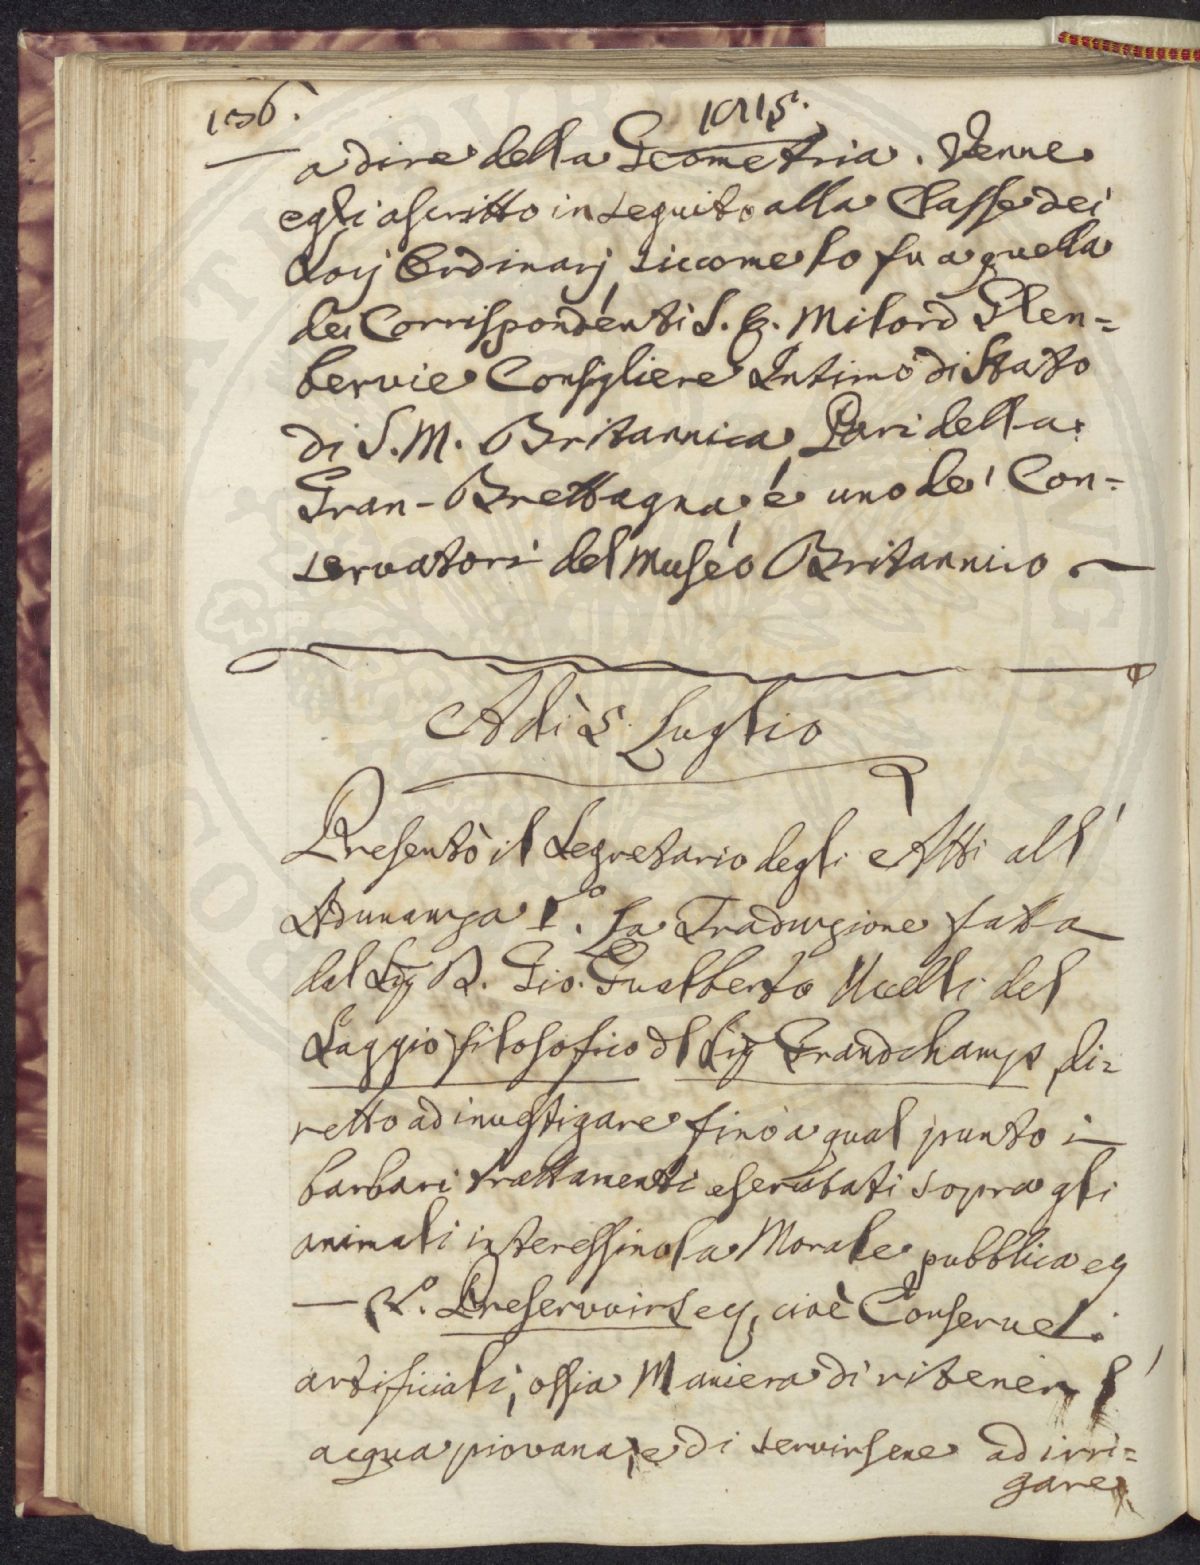 136.
1815.
a dire della Geometria. Venne
egli ascritto in seguito alla Classe dei
Socj Ordinarj, siccome lo fu a quella
dei Corrispondenti S. E. Milord Glen=
bervie Consigliere Intimo di Stato
di S. M. Britannica, Pari della
Gran-Brettagna, e uno de' Con=
servatori del Museo Britannico
Adì 5. Luglio
Presentò il Segretario degli Atti all'
Adunanza 1.º La Traduzione fatta
dal Sig. D. Gio. Gualberto Uccelli del
Saggio filosofico del Sig. Grandchamp, di=
retto ad investigare fino a qual punto i
barbari trattamenti esercitati sopra gli
animali interessino la Morale pubblica ec
— 2.º Preservoirs ec, cioè Conserve
artificiali, ossia Maniera di ritener l'
acqua piovana, e di servirsene ad irri=
gare